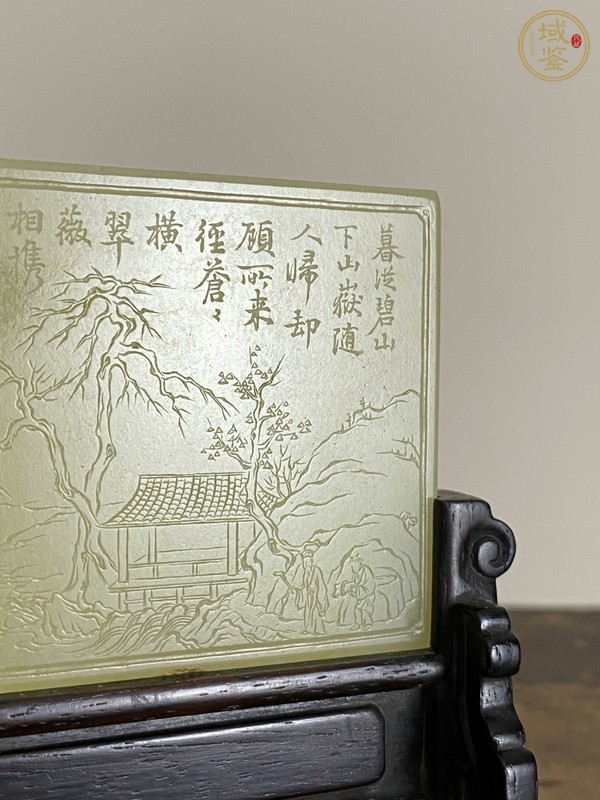 暮從碧山
下山嶽隨
人歸却
顧所来
徑蒼〻
橫
翠
薇
相携
域鉴